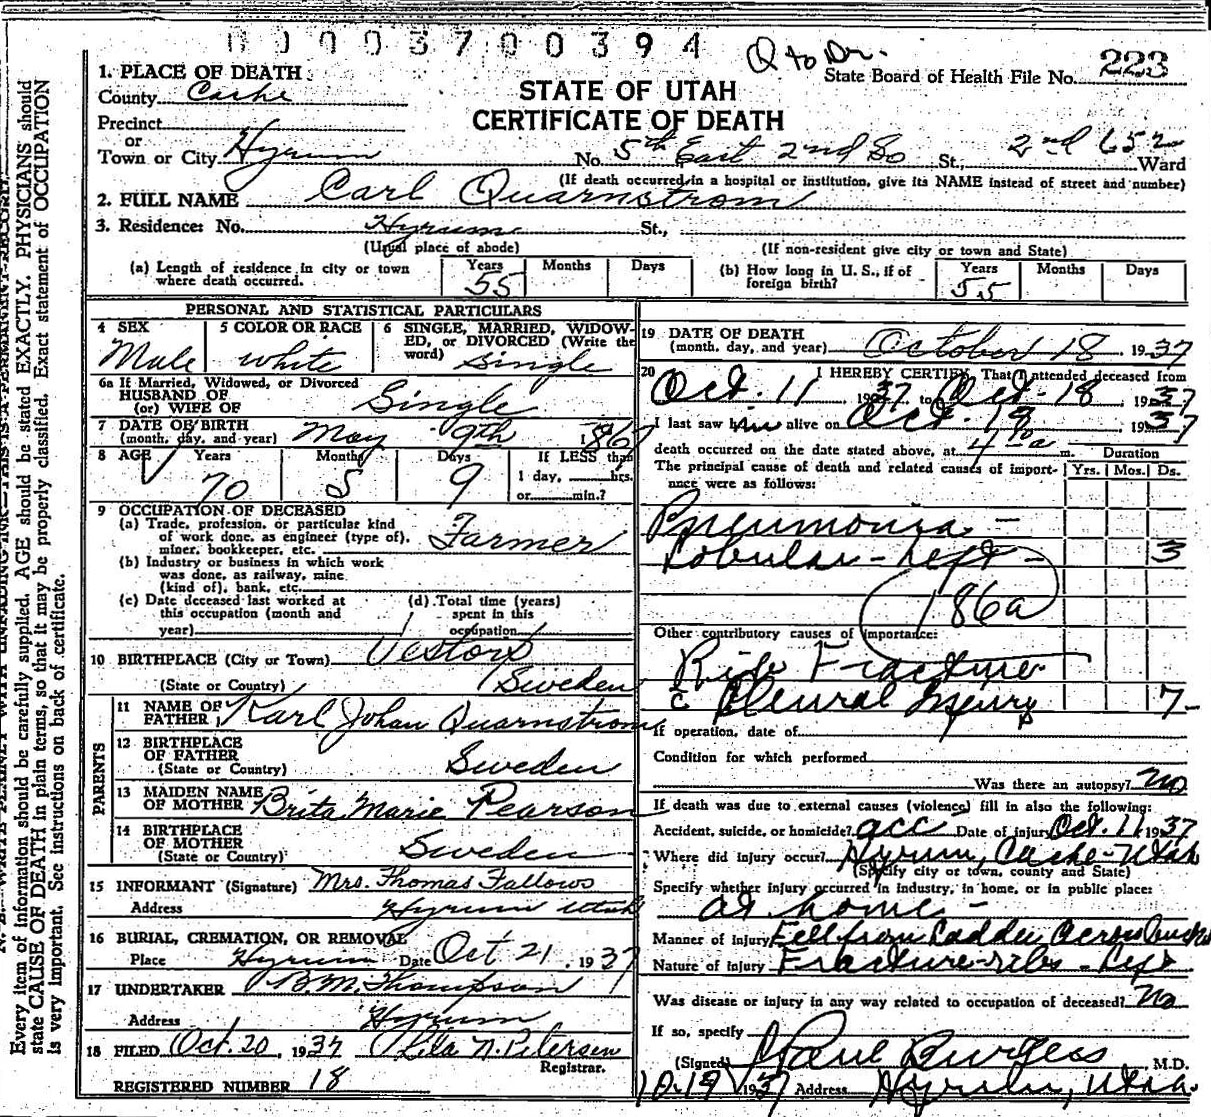 00003700394
Q to Dr.
State Board of Health File No. 223
1. PLACE OF DEATH
County Cache
STATE OF UTAH
CERTIFICATE OF DEATH
Precinct
or
Town or City Hyrum No. 5th East 2nd So St., 2nd Ward
(If death occurred in a hospital or institution, give its NAME instead of street and number)
2. FULL NAME Carl Quarnstrom
3. Residence: No. Hyrum St.,
(Usual place of abode) (If non-resident give city or town and State)
(a) Length of residence in city or town where death occurred. Years 55 Months Days
(b) How long in U. S., if of foreign birth? Years 55 Months Days
PERSONAL AND STATISTICAL PARTICULARS
4 SEX Male
5 COLOR OR RACE white
6 SINGLE, MARRIED, WIDOWED, OR DIVORCED (Write the word) Single
6a If Married, Widowed, or Divorced
HUSBAND OF
(or) WIFE OF Single
7 DATE OF BIRTH
(month, day, and year) May 9th 1867
8 AGE Years 70 Months 5 Days 9
If LESS than
1 day, hrs.
or min.?
9 OCCUPATION OF DECEASED
(a) Trade, profession, or particular kind of work done, as engineer (type of), miner, bookkeeper, etc. Farmer
(b) Industry or business in which work was done, as railway, mine (kind of), bank, etc.
(c) Date deceased last worked at this occupation (month and year)
(d) Total time (years) spent in this occupation
10 BIRTHPLACE (City or Town)
(State or Country) Sweden
PARENTS
11 NAME OF FATHER Karl Johan Quarnstrom
12 BIRTHPLACE OF FATHER
(State or Country) Sweden
13 MAIDEN NAME OF MOTHER Brita Marie Pearson
14 BIRTHPLACE OF MOTHER
(State or Country) Sweden
15 INFORMANT (Signature) Mrs. Thomas Fallows
Address Hyrum Utah
16 BURIAL, CREMATION, OR REMOVAL
Place Hyrum Date Oct 21, 1937
17 UNDERTAKER B.M. Thompson
Address Hyrum
18 FILED Oct. 20, 1937 Lila N. Petersen
Registrar.
REGISTERED NUMBER 18
19 DATE OF DEATH
(month, day, and year) October 18 1937
20 I HEREBY CERTIFY, That I attended deceased from
Oct. 11, 1937 to Oct. 18 1937
I last saw him alive on Oct. 1937
death occurred on the date stated above, at m.
The principal cause of death and related causes of importance were as follows:
Duration
Yrs. Mos. Ds.
Pneumonia -
Lobular - Left - 3
186a
Other contributory causes of importance:
Rib Fracture
c Pleural Injury 7-
If operation, date of
Condition for which performed
Was there an autopsy? no
If death was due to external causes (violence) fill in also the following:
Accident, suicide, or homicide? acc Date of injury Oct. 11 1937
Where did injury occur? Hyrum, Cache - Utah
(Specify city or town, county and State)
Specify whether injury occurred in industry, in home, or in public place:
at home -
Manner of Injury Fell from Ladder across
Nature of Injury Fracture - ribs - Left
Was disease or injury in any way related to occupation of deceased? No
If so, specify
(Signed) Paul Burgess M.D.
10-19 1937 Address Hyrum, Utah.
Every item of information should be carefully supplied. AGE should be stated EXACTLY. PHYSICIANS should
state CAUSE OF DEATH in plain terms, so that it may be properly classified. Exact statement of OCCUPATION
is very important. See instructions on back of certificate.